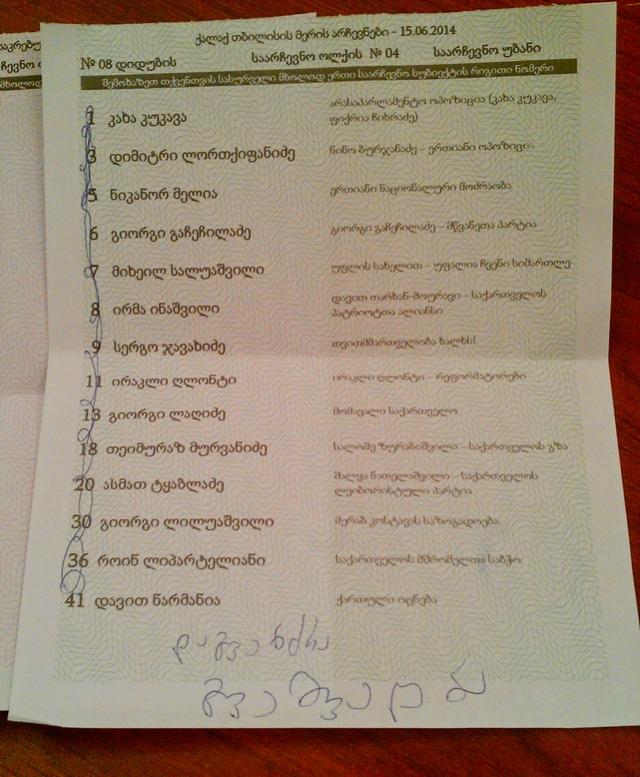 ქალაქ თბილისის მერის არჩევნები - 15.06.2014
№ 08 დიდუბის საარჩევნო ოლქის № 04 საარჩევნო უბანი
შემოხაზეთ თქვენთვის სასურველი მხოლოდ ერთი საარჩევნო სუბიექტის რიგითი ნომერი
1 კახა კუკავა არასაპარლამენტო ოპოზიცია (კახა კუკავა,
ფიქრია ჩიხრაძე)
3 დიმიტრი ლორთქიფანიძე ნინო ბურჯანაძე - ერთიანი ოპოზიცია
5 ნიკანორ მელია ერთიანი ნაციონალური მოძრაობა
6 გიორგი გაჩეჩილაძე გიორგი გაჩეჩილაძე - მწვანეთა პარტია
7 მიხეილ სალუაშვილი უფლის სახელით - უფალია ჩვენი სიმართლე
8 ირმა ინაშვილი დავით თარხან-მოურავი - საქართველოს
პატრიოტთა ალიანსი
9 სერგო ჯავახიძე თვითმმართველობა ხალხს!
11 ირაკლი ღლონტი ირაკლი ღლონტი - რეფორმატორები
13 გიორგი ლაღიძე მომავალი საქართველო
18 თეიმურაზ მურვანიძე სალომე ზურაბიშვილი - საქართველოს გზა
20 ასმათ ტყაბლაძე შალვა ნათელაშვილი - საქართველოს
ლეიბორისტული პარტია
30 გიორგი ლილუაშვილი მერაბ კოსტავას საზოგადოება
36 როინ ლიპარტელიანი საქართველოს მშრომელთა საბჭო
41 დავით ნარმანია ქართული ოცნება